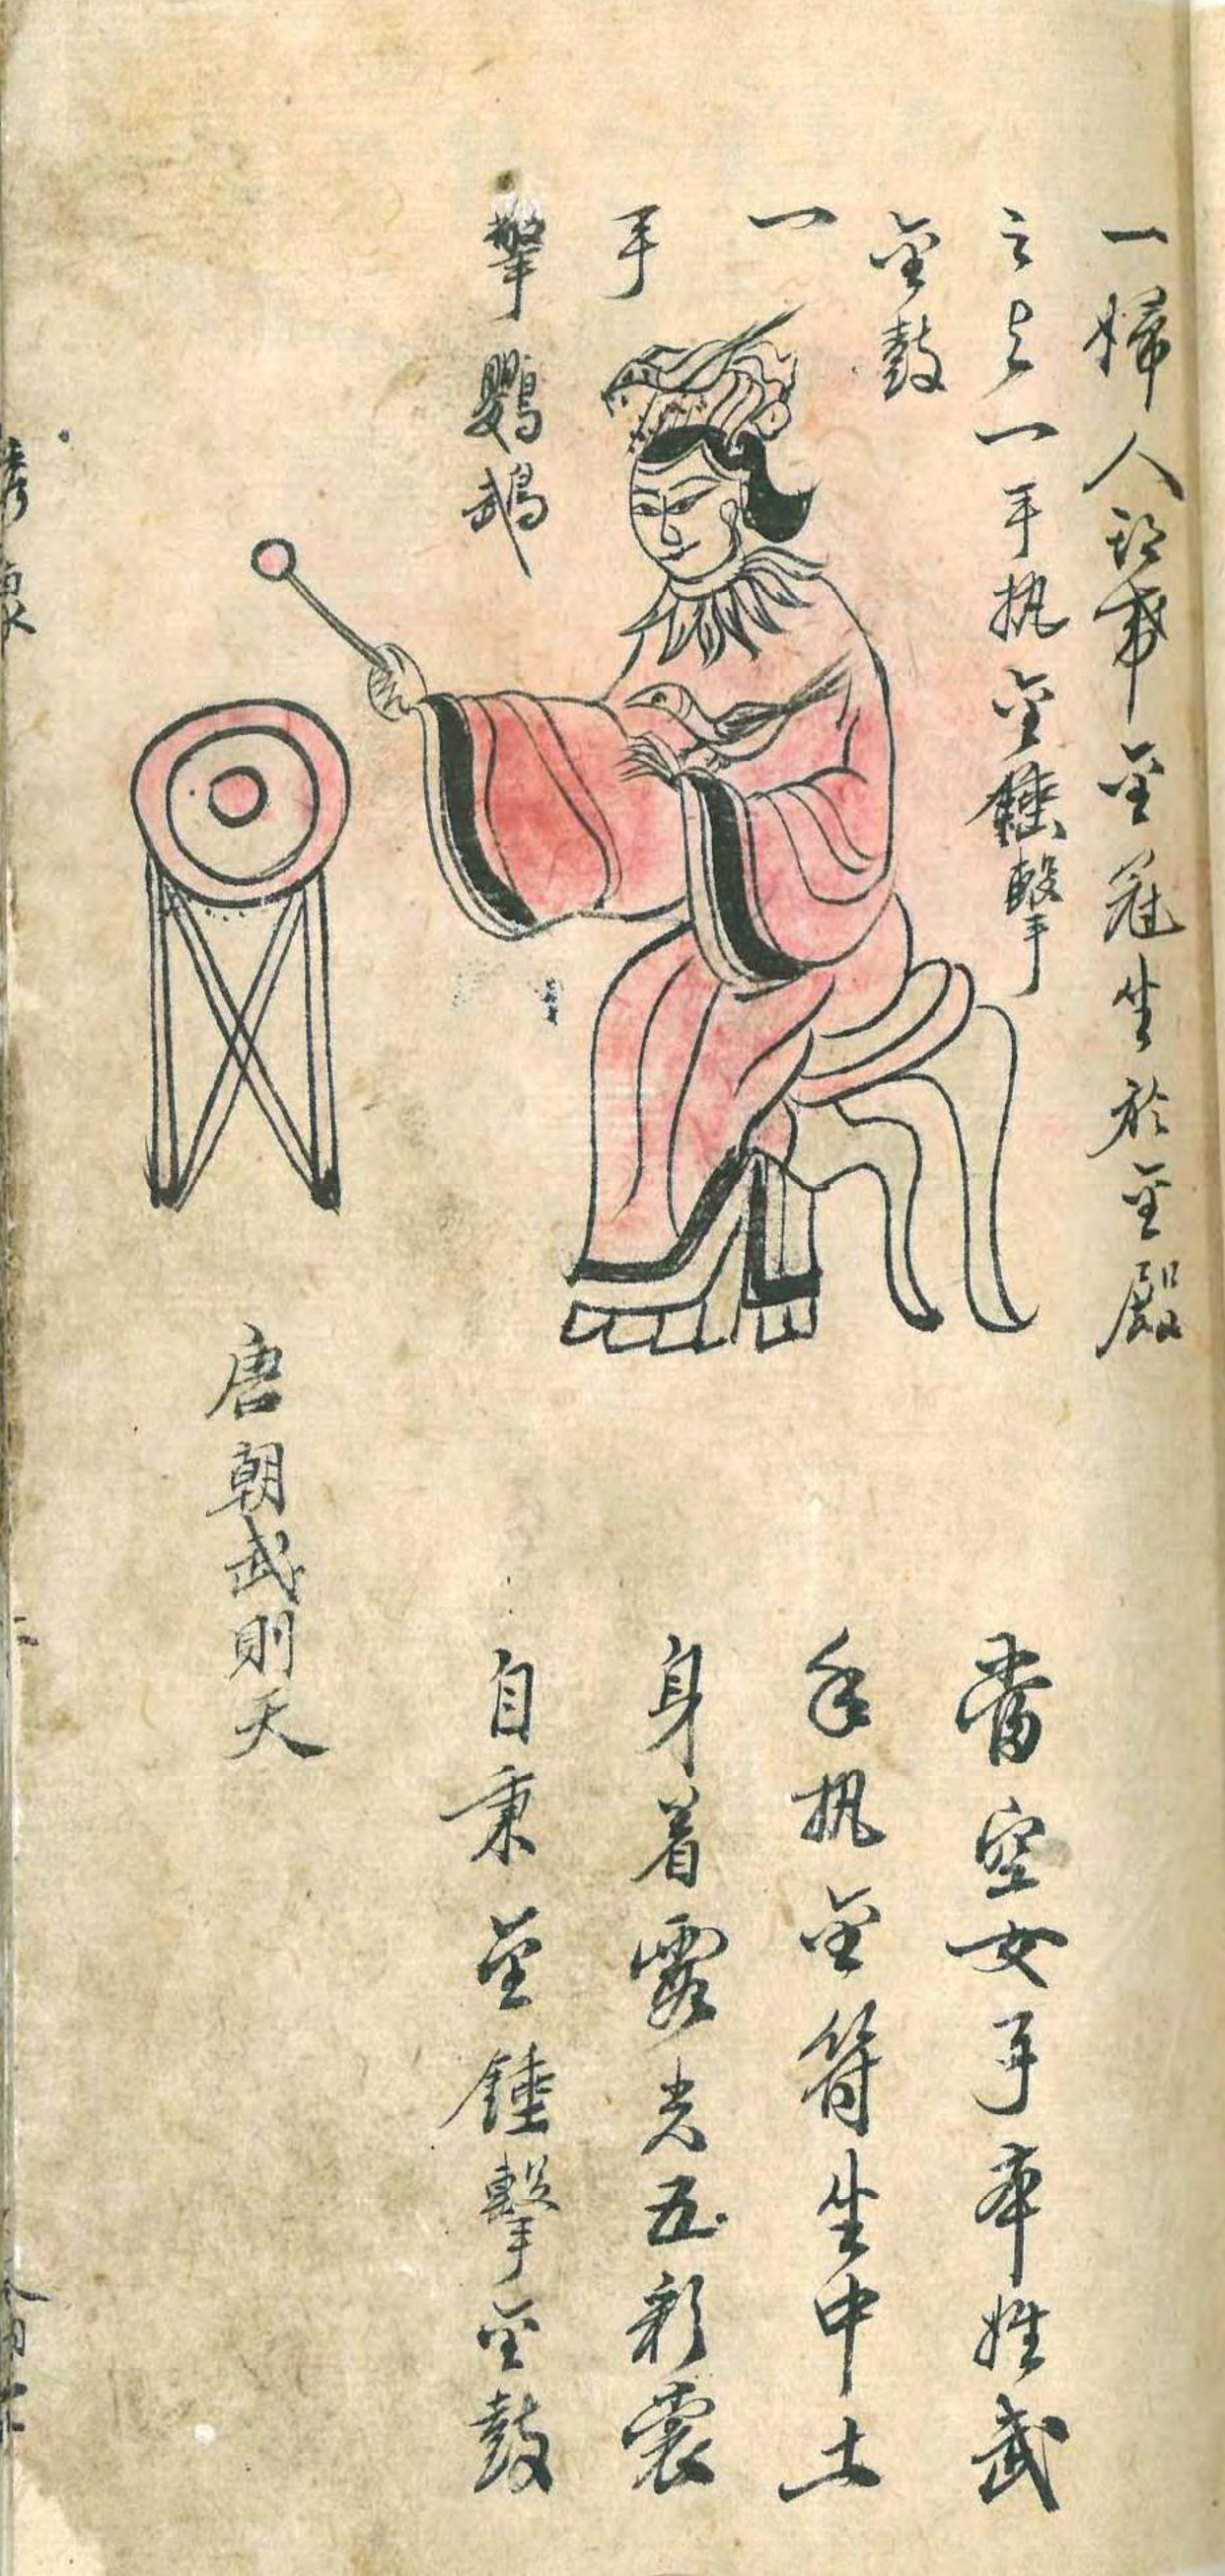 一婦人頭戴金冠坐於金殿
之上一手執金錘擊
金鼓
一
手
擎鸚鵡
當空女子本姓武
手執金符坐中土
身着霞光五彩裳
自秉金錘擊金鼓
唐朝武則天